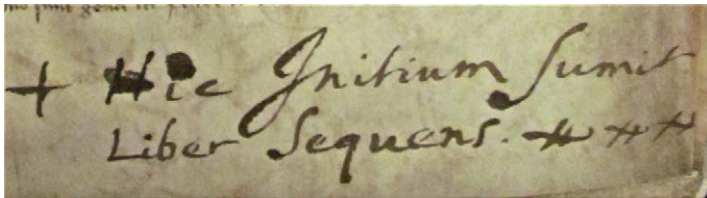 + Hic Initium Sumit
Liber Sequens. +++